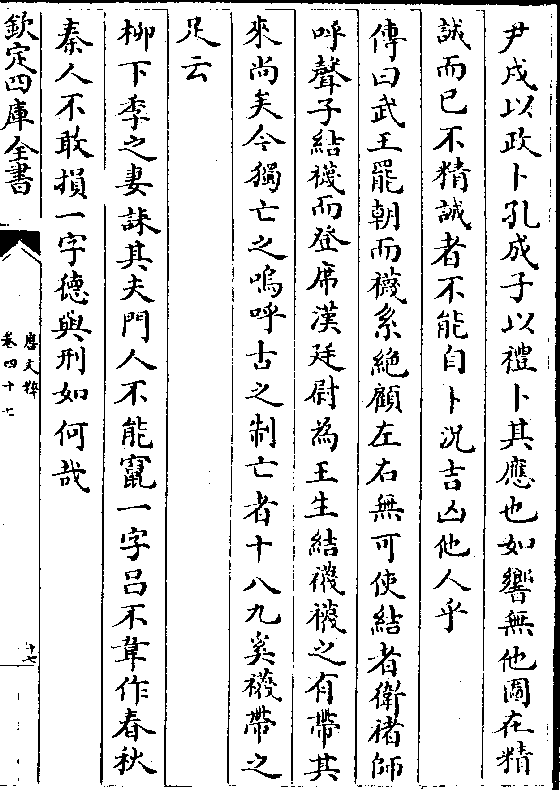 尹戌以政卜孔成子以禮卜其應也如響無他圖在精
誠而已不精誠者不能自卜況吉凶他人乎
傳曰武王罷朝而襪系絶顧左右無可使結者衛褚師
呼聲子結襪而登席漢廷尉為王生結襪襪之有帶其
來尚矣今獨亡之嗚呼古之制亡者十八九奚襪帶之
足云
柳下季之妻誄其夫門人不能竄一字吕不韋作春秋
秦人不敢損一字德與刑如何哉
欽定四庫全書
唐文粹
卷四十七
十七